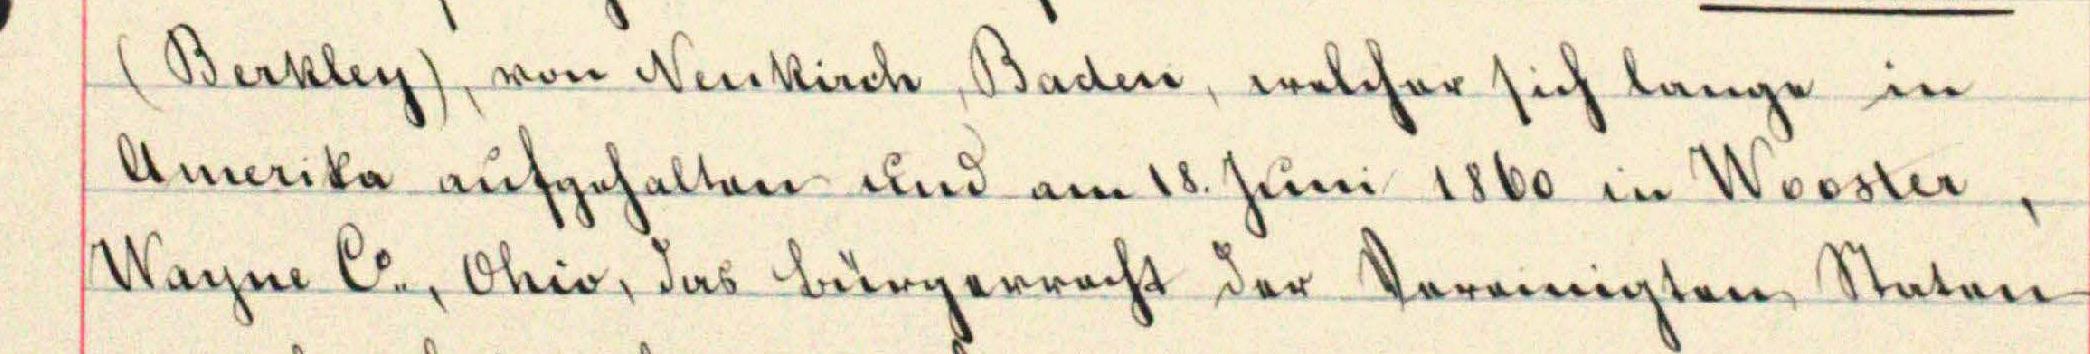 (Berkley), von Neukirch, Baden, welcher sich lange in
Amerika aufgehalten und am 18. Juni 1860 in Wooster,
Wayne Co., Ohio, das Bürgerrecht der Vereinigten Staten